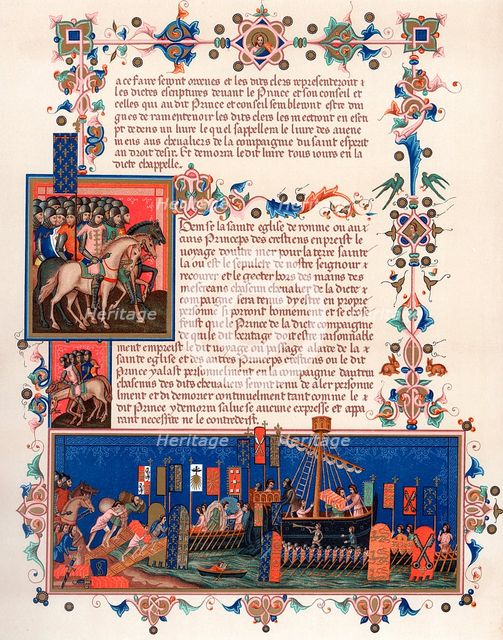 a ce faire seront ordenes et les dits clers representeront
les dictes escriptures devant le Prince et son conseil et
celles qui audit Prince et conseil sembleront estre dig
gues de ramentenoir les dits clers les mectront en escri
pt dedens un livre le quel sappellem le livre des avene
mens aus chevaliers de la compaignie du saint esprit
au droit desir. Et demorra le dit livre tous iours en la
dicte chappelle.
Item se la sainte eglise de romme ou au
cuns Princeps des crestiens enpreist le
voyage doultre mer pour la terre sainte
la ou est le sepulcre de nostre seignour a
recouvrer et le gecter hors des mains des
mescreans chascun chevalier de la dicte
compaigne sera tenus dy estre en propre
personne si porront bonnement et se chose
feust que le Prince de la dicte compaigne
de qui le dit heritage doit estre raisonnable
ment enpreist le dit voyage ou passage a laide de la
sainte eglise et des autres Princeps crestiens ou le dit
Prince yalast personnelment en la compaignie dautrui
chascuns des dits chevaliers seront tenu de aler personne
lment et di demorer continuelment tant comme le
dit Prince y demorra salve se aucune expresse et appa
rant necessite ne le contredeist.
Heritage
Heritage
Heritage
Heritage